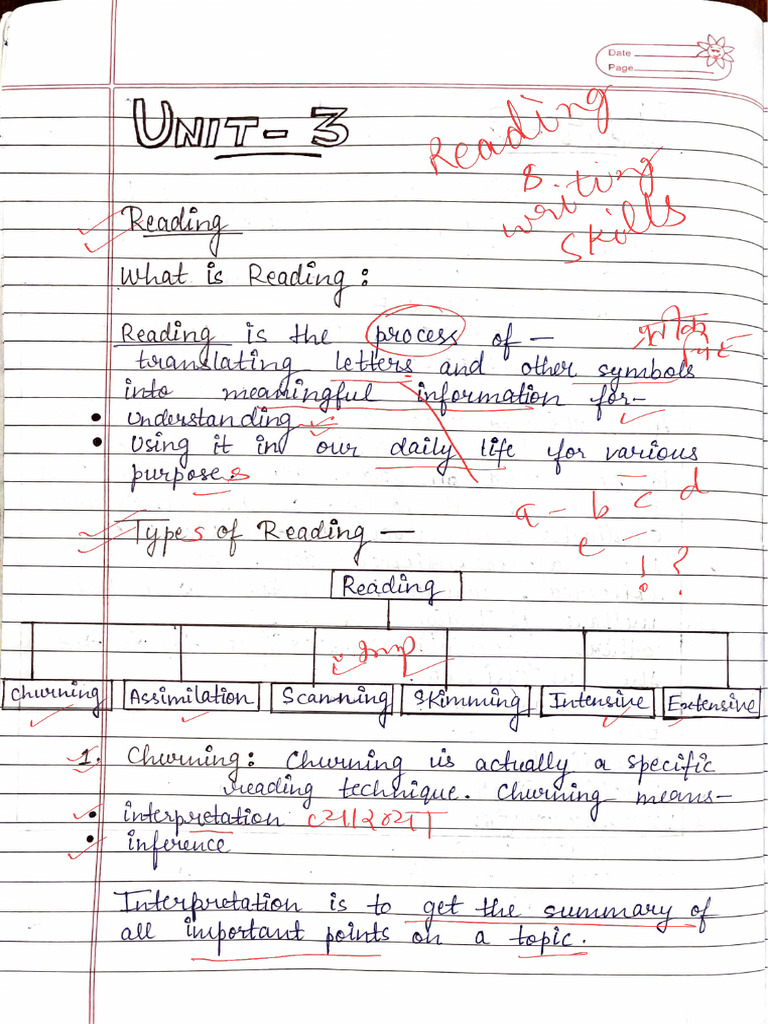 Date
Page
UNIT-3
Reading
&
writing
skills
Reading
What is Reading :
Reading is the process of -
translating letters and other symbols
into meaningful information for-
• Understanding
• Using it in our daily life for various
purposes
a - b c d
e -
! ?
Types of Reading -
Reading
Imp.
Churning Assimilation Scanning Skimming Intensive Extensive
1. Churning : Churning is actually a specific
reading technique. Churning means-
• interpretation व्याख्या
• inference
Interpretation is to get the summary of
all important points on a topic.